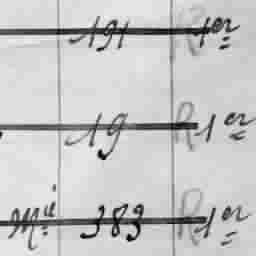 191 R 1er
19 R 1er
Mié 383 R 1er